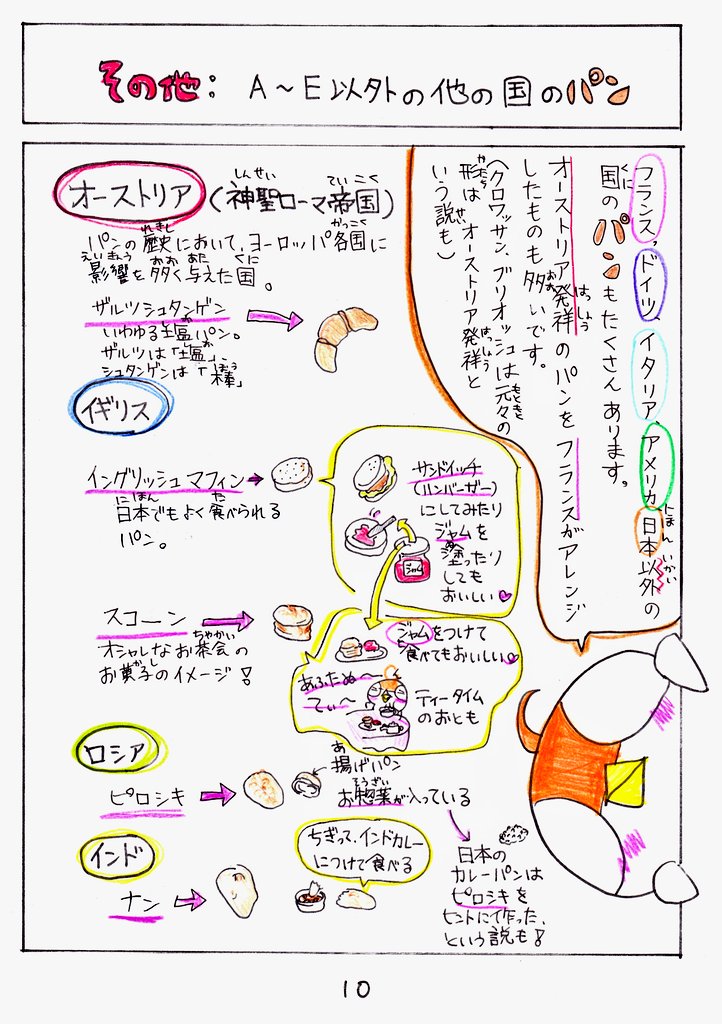 その他: A～E以外の他の国のパン
フランス、ドイツ、イタリア、アメリカ、日本以外の
国のパンもたくさんあります。
オーストリア発祥のパンをフランスがアレンジ
したものも多いです。
(クロワッサン、ブリオッシュは元々の
形はオーストリア発祥と
いう説も)
オーストリア(神聖ローマ帝国)
パンの歴史において、ヨーロッパ各国に
影響を多く与えた国。
ザルツシュタンゲン
いわゆる塩パン。
ザルツは「塩」、
シュタンゲンは「棒」
イギリス
イングリッシュマフィン
日本でもよく食べられる
パン。
サンドイッチ
(ハンバーガー)
にしてみたり
ジャムを
塗ったり
しても
おいしい
ジャム
スコーン
オシャレなお茶会の
お菓子のイメージ!
ジャムをつけて
食べてもおいしい
あふたぬ～
てぃ～
ティータイム
のおとも
ロシア
ピロシキ
揚げパン
お惣菜が入っている
日本の
カレーパンは
ピロシキを
ヒントに作った、
という説も!
インド
ナン
ちぎって、インドカレー
につけて食べる
10